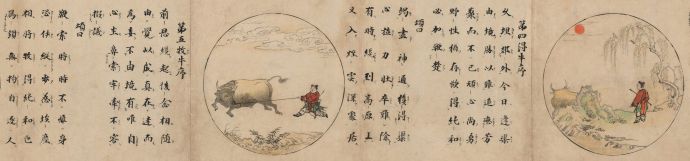 第四得牛序
久埋郊外今日逢渠
由境勝以難追戀芳
叢而不已頑心尚勇
野性猶存欲得純和
必加鞭楚
頌曰
竭盡神通獲得渠
心强力壯卒難除
有時纔到高原上
又入煙雲深處居
第五牧牛序
前思纔起後念相隨
由覺以成真在迷而
爲妄不由境有唯自
心生鼻索牢牽不容
擬議
頌曰
鞭索時時不離身
恐伊縱步惹埃塵
相將牧得純和也
羈鎖無拘自逐人